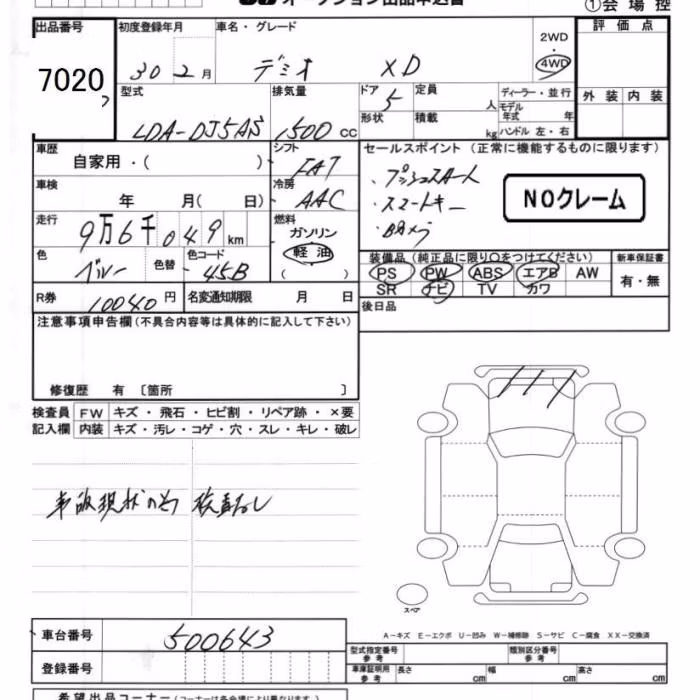 ①会場控
出品番号 初度登録年月 車名・グレード 2WD 評価点
7020 30 2月 デミオ XD ・ 4WD
型式 排気量 ドア 5 定員 人 ディーラー・並行 外装 内装
LDA-DJ5AS 1500 cc 形状 積載 kg モデル年式 年
ハンドル 左・右
車歴 シフト セールスポイント(正常に機能するものに限ります)
自家用・( ) FAT ・プッシュスタート
車検 冷房 ・スマートキー NOクレーム
年 月( 日) AAC ・Bカメラ
走行 燃料
9万6千049km ガソリン
色 色替 色コード 軽油 装備品(純正品に限り○をつけてください) 新車保証書
ブルー 45B ( ) PS PW ABS エアB AW 有・無
R券 10040円 名変通知期限 月 日 SR ナビ TV カワ
注意事項申告欄(不具合内容等は具体的に記入して下さい) 後日品
修復歴 有 〔箇所 〕
検査員 FW キズ・飛石・ヒビ割・リペア跡・×要
記入欄 内装 キズ・汚レ・コゲ・穴・スレ・キレ・破レ
検査なし
スペア
車台番号 500643 A-キズ E-エクボ U-凹み W-補修跡 S-サビ C-腐食 XX-交換済
型式指定番号 参考 類別区分番号 参考
登録番号 車庫証明用 参考 長さ cm 幅 cm 高さ cm